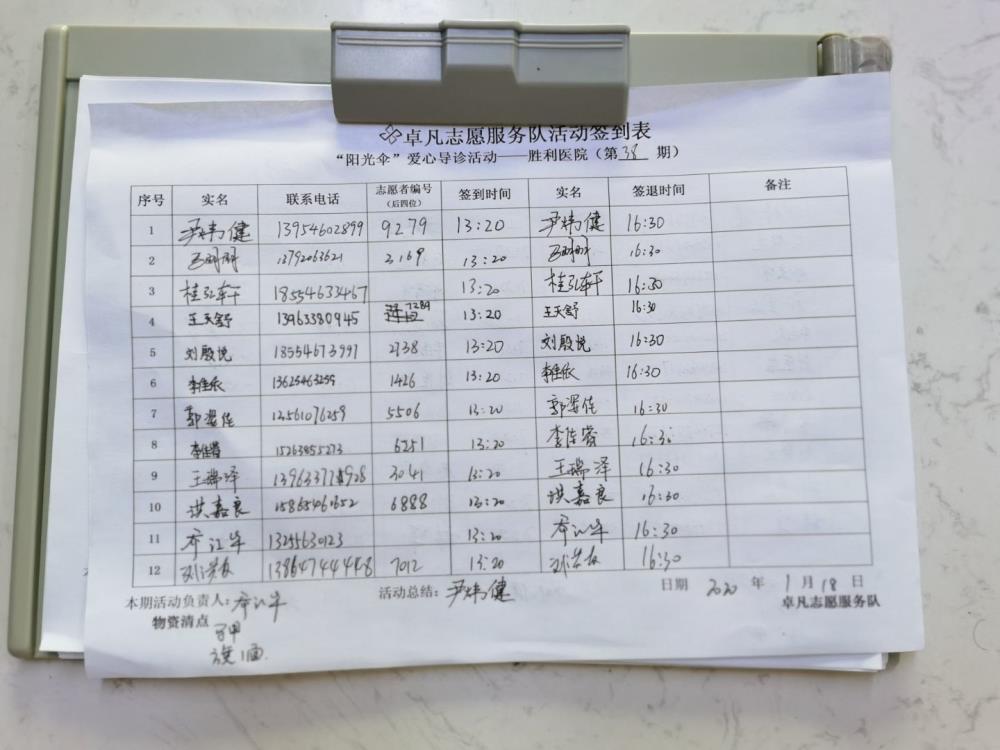 卓凡志愿服务队活动签到表
“阳光伞”爱心导诊活动——胜利医院（第 38 期）
序号 实名 联系电话 志愿者编号（后四位） 签到时间 实名 签退时间 备注
1 尹炜健 13954602899 9279 13:20 尹炜健 16:30
2 13792063621 2169 13:20 16:30
3 桂弘轩 18554633467 13:20 桂弘轩 16:30
4 王天舒 13963380945 7289 13:20 王天舒 16:30
5 刘殷悦 18554673991 2738 13:20 刘殷悦 16:30
6 李佳依 13625463259 1426 13:20 李佳依 16:30
7 郭梁佳 5506 13:20 郭梁佳 16:30
8 李佳睿 15263855273 6251 13:20 李佳睿 16:3
9 王瑞泽 3041 13:20 王瑞泽 16:30
10 洪嘉良 15865461652 6888 13:20 洪嘉良 16:30
11 乔江华 13255630123 13:20 乔江华 16:30
12 13864744448 7012 13:20 16:30
本期活动负责人：乔江华 活动总结：尹炜健 日期 2020 年 1 月 18 日
物资清点 卓凡志愿服务队
旗1面.